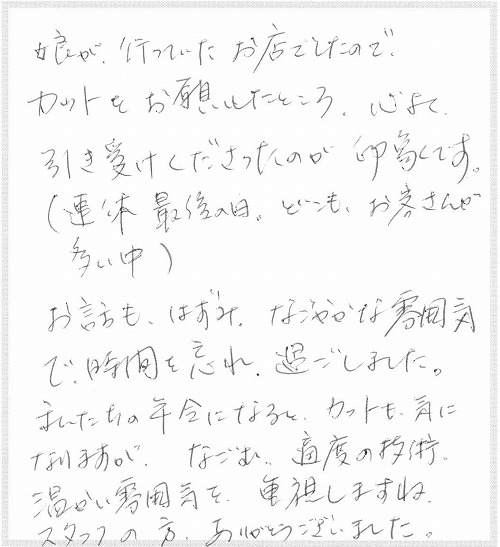 娘が、行っていたお店でしたので、
カットをお願いしたところ、心よく、
引き受けくださったのが印象です。
(連休最後の日。どこも、お客さんが
多い中)
お話も、はずみ、なごやかな雰囲気
で、時間を忘れ、過ごしました。
私たちの年令になると、カットも、気に
なりますが、なごむ、適度の技術、
温かい雰囲気を、重視しますね、
スタッフの方、ありがとうございました。